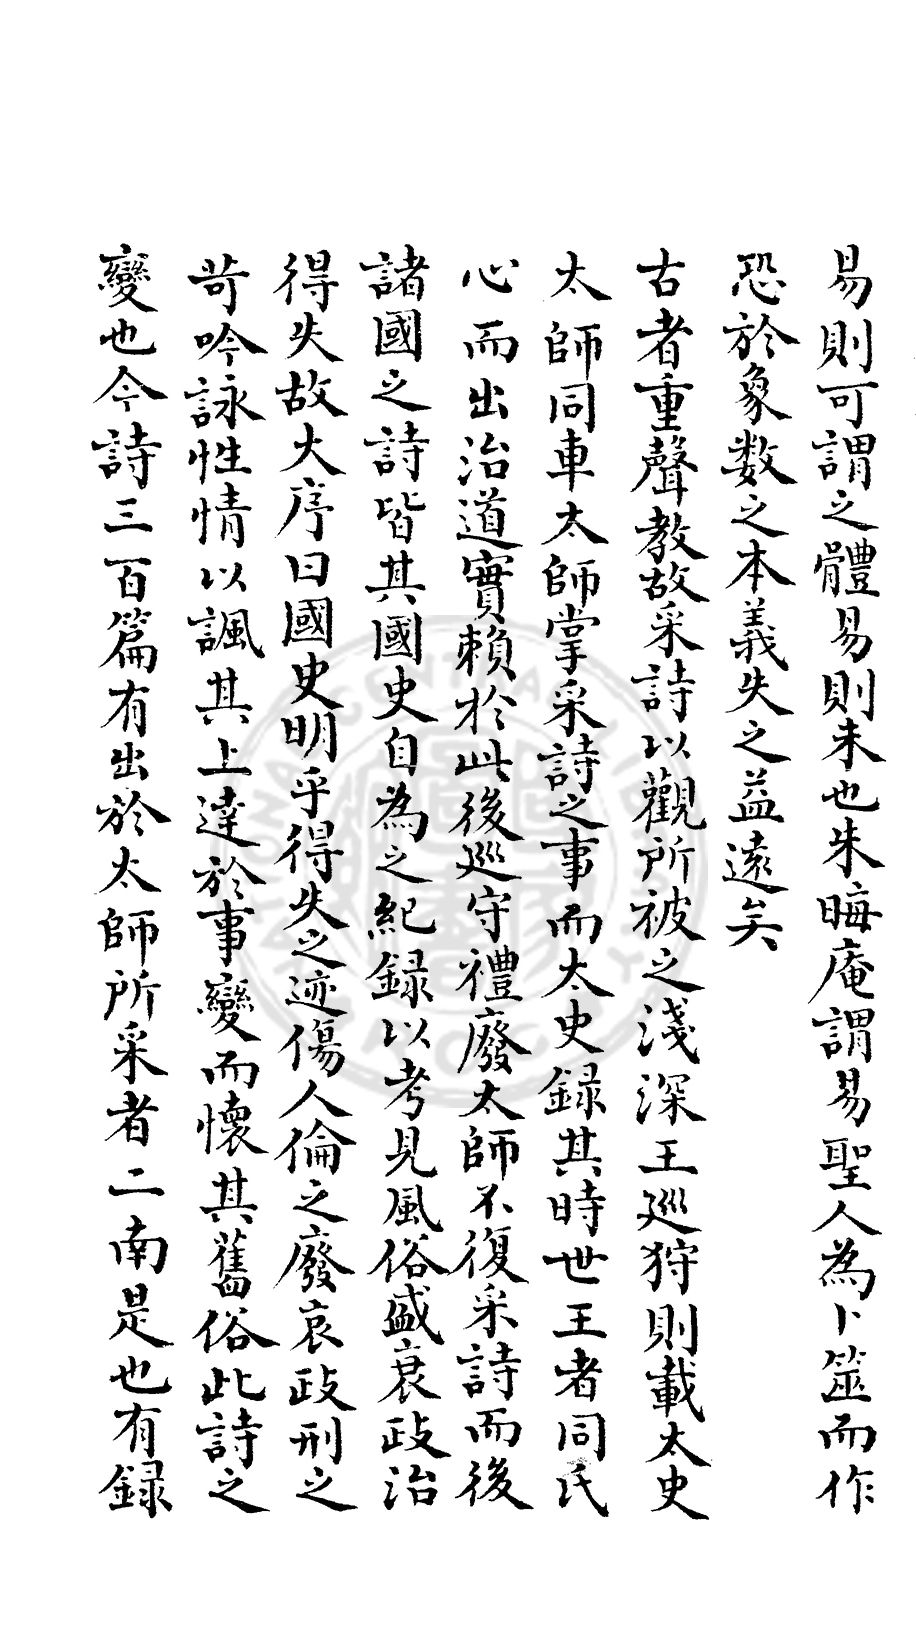 易則可謂之體易則未也朱晦庵謂易聖人為卜筮而作
恐於象数之本義失之益遠矣
古者重聲教故采詩以觀所被之淺深王巡狩則載太史
太師同車太師掌采詩之事而太史録其時世王者同氏
心而出治道實賴於此後巡守禮廢太師不復采詩而後
諸國之詩皆其國史自為之紀録以考見風俗盛衰政治
得失故大序曰國史明乎得失之迹傷人倫之廢哀政刑之
苛吟詠性情以諷其上達於事變而懷其舊俗此詩之
變也今詩三百篇有出於太師所采者二南是也有録